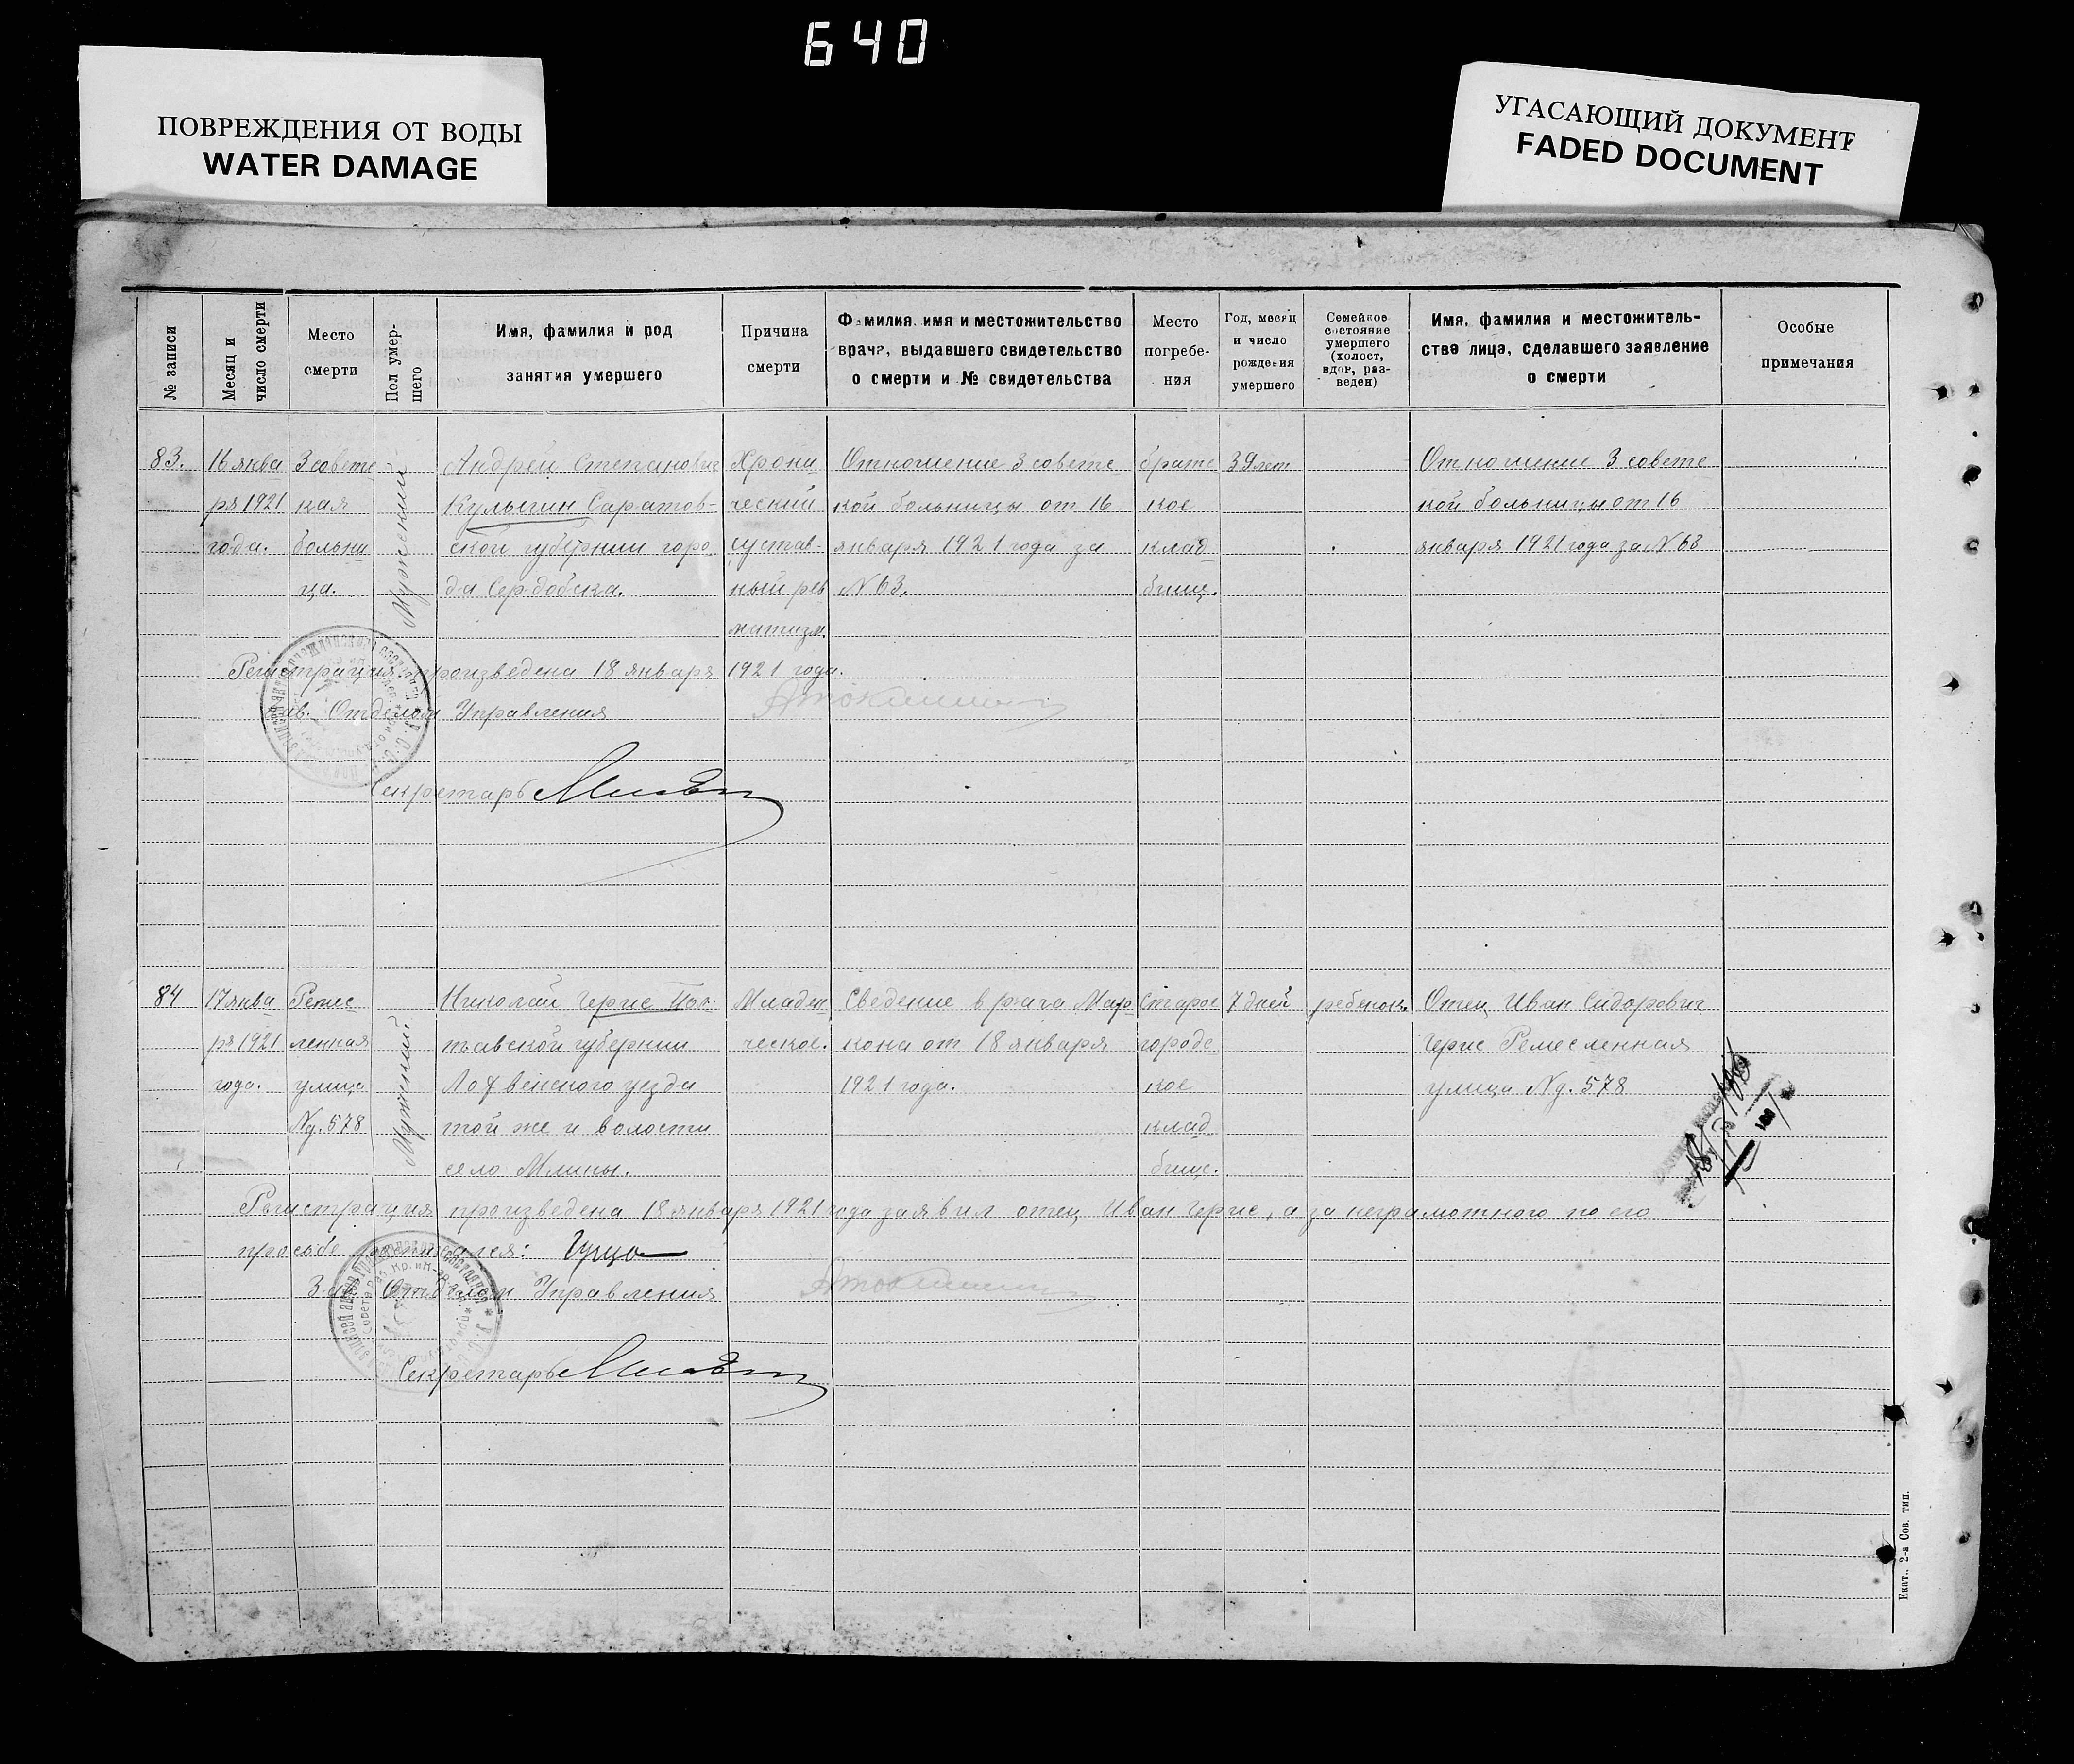 640
ПОВРЕЖДЕНИЯ ОТ ВОДЫ
WATER DAMAGE
УГАСАЮЩИЙ ДОКУМЕНТ
FADED DOCUMENT
№ записи
Месяц и число смерти
Место смерти
Пол умер-
шего
Имя, фамилия и род
занятия умершего
Причина
смерти
Фамилия, имя и местожительство
врача, выдавшего свидетельство
о смерти и № свидетельства
Место
погребе-
ния
Год, месяц
и число
рождения
умершего
Семейное
состояние
умершего
(холост,
вдов, раз-
веден)
Имя, фамилия и местожитель-
ство лица, сделавшего заявление
о смерти
Особые
примечания
83.
16 янва
ря 1921
года.
3 советс
кая
больни
ца.
Мужской
Андрей Степанович
Кулыгин Саратов-
ской губернии горо
да Сердобска.
Хрони
ческий
сустав-
ный рев
матизм.
Отношение 3 советс
кой больницы от 16
января 1921 года за
N 63.
братс
кое
клад
бищ.
39 лет
Отношение 3 советс
кой больницы от 16
января 1921 года за N 63
Регистрация произведена 18 января 1921 года.
Зав. Отделом Управления
Секретарь
84
17 янва
ря 1921
года.
Ремес
ленная
улица
Nд. 578
Мужской
Николай Черис Пол-
тавской губернии
Лохвенского уезда
той же и волости
село Млины.
Младен
ческое.
Сведение врача Мар
кона от 18 января
1921 года.
Старое
городс
кое
клад
бищ.
7 дней
ребенок.
Отец Иван Сидорович
Черис Ремесленная
улица Nд. 578
Регистрация произведена 18 января 1921 года заявил отец Иван Черис, а за неграмотного по его
просьбе расписался:
Зав. Отделом Управления
Секретарь
Екат., 2-я Сов. тип.